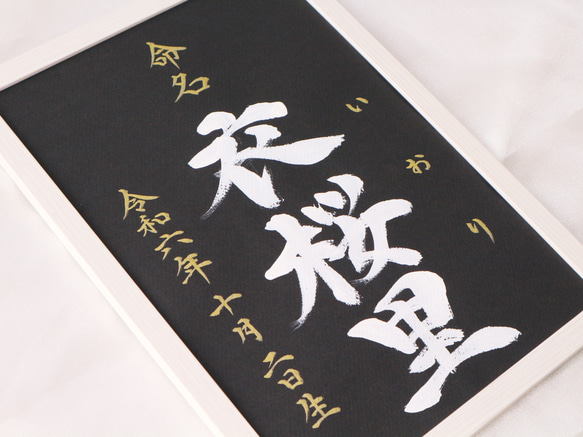 命名
いおり
衣桜里
令和六年 十月二日生